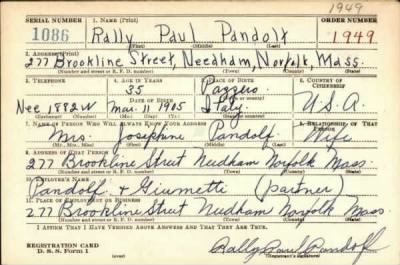 1949
SERIAL NUMBER 1. NAME (Print) ORDER NUMBER
1086 Rally Paul Pandolf 1949
(First) (Middle) (Last)
2. ADDRESS (Print)
277 Brookline Street, Needham, Norfolk, Mass.
(Number and street or R. F. D. number) (Town) (County) (State)
3. TELEPHONE 4. AGE IN YEARS 5. PLACE OF BIRTH 6. COUNTRY OF CITIZENSHIP
35 Pazzero
Nee 1882W DATE OF BIRTH Mar. 11 1905 Italy U.S.A.
7. NAME OF PERSON WHO WILL ALWAYS KNOW YOUR ADDRESS 8. RELATIONSHIP OF THAT PERSON
Mrs. Josephine Pandolf Wife
(Mr., Mrs., Miss) (First) (Middle) (Last)
9. ADDRESS OF THAT PERSON
277 Brookline Street Needham Norfolk Mass.
(Number and street or R. F. D. number) (Town) (County) (State)
10. EMPLOYER'S NAME
Pandolf & Giumetti (partner)
11. PLACE OF EMPLOYMENT OR BUSINESS
277 Brookline Street Needham Norfolk Mass.
(Number and street or R. F. D. number) (Town) (County) (State)
I AFFIRM THAT I HAVE VERIFIED ABOVE ANSWERS AND THAT THEY ARE TRUE.
REGISTRATION CARD
D. S. S. Form 1
Rally Paul Pandolf
(Registrant's signature)